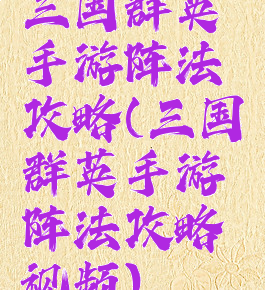 三国群英
手游阵法
攻略(三国
群英手游
阵法攻略
视频)